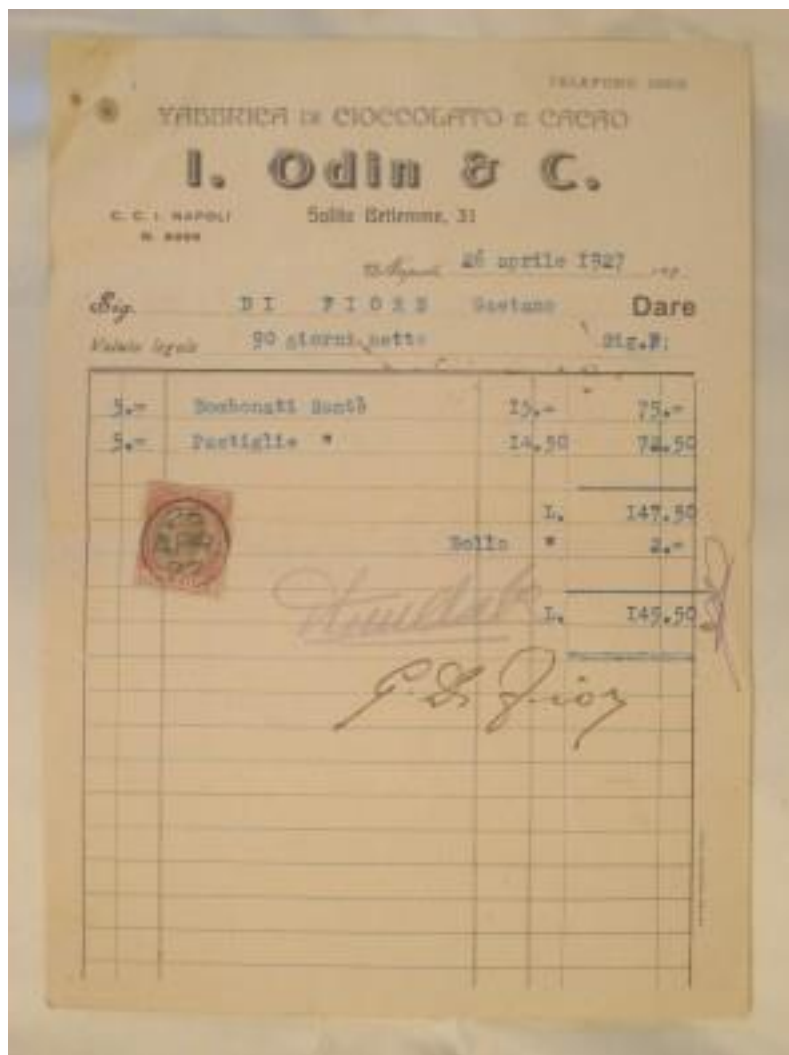 TELEFONO
FABBRICA DI CIOCCOLATO E CACAO
I. Odin & C.
C. C. I. NAPOLI
N.
Salita Betlemme, 31
Napoli 26 aprile 1927 19
Sig. DI FIORE Gaetano Dare
Valuta legale 90 giorni netto
5.= Bombonati Santè 15.- 75.-
5.= Pastiglie " 14.50 72.50
L. 147.50
Bollo " 2.-
L. 149.50
G. Di Fiore